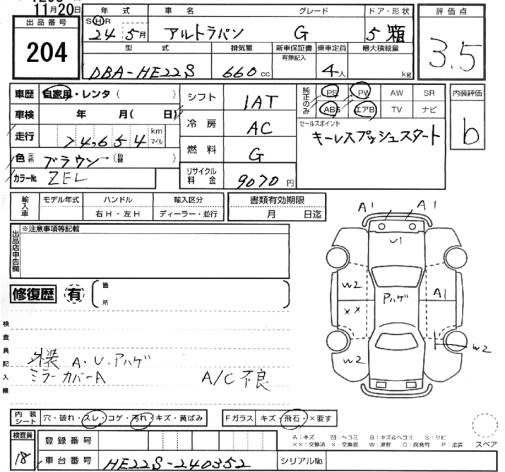 11月20日
出品番号
204
年式 グレード ドア・形状
S・H・R
24年5月 アルトラパン G 5 箱
型式 排気量 新車保証書 有無記入 乗車定員 最大積載量
DBA-HE22S 660cc 4人 kg
評価点
3.5
車歴 自家用・レンタ( )
車検 年 月( 日)
走行 74,654 km マイル
色 ブラウン
カラーNo. ZEL
シフト 1AT
冷房 AC
燃料 G
リサイクル料金 9070円
純正のみ
PS PW AW SR
ABS エアB TV ナビ
セールスポイント
キーレスプッシュスタート
内装評価
b
輸入車 モデル年式 ハンドル 輸入区分
右H・左H ディーラー・並行
書類有効期限
月 日迄
出品店申告欄
※注意事項等記載
修復歴 有 箇所
検査員記入欄
外装 A・U・アハゲ
ミラーカバーA A/C不良
A1 A1
U1
W2 アハゲ A1
XX
W2 W2
内装シート 穴・破れ・スレ・コゲ・汚れ・キズ・黄ばみ
Fガラス キズ・飛石・×要す
スペア
検査員
18
登録番号
車台番号 HE22S-240352
シリアルNo.